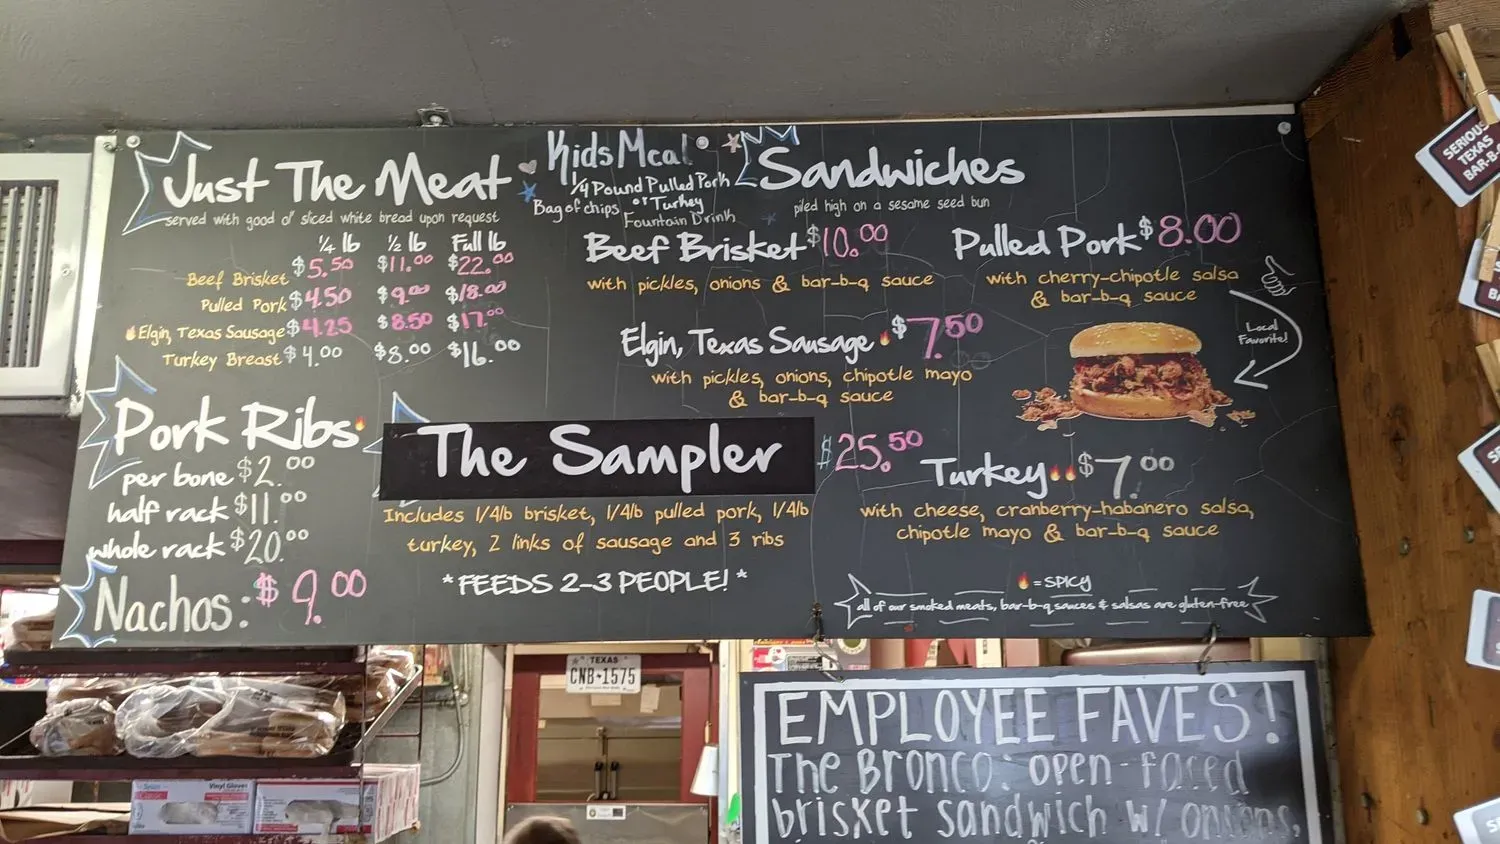 Just The Meat
served with good ol' sliced white bread upon request
1/4 lb 1/2 lb Full lb
Beef Brisket $5.50 $11.00 $22.00
Pulled Pork $4.50 $9.00 $18.00
Elgin, Texas Sausage $4.25 $8.50 $17.00
Turkey Breast $4.00 $8.00 $16.00
Pork Ribs
per bone $2.00
half rack $11.00
whole rack $20.00
Nachos: $9.00
Kids Meal
1/4 Pound Pulled Pork
or Turkey
Bag of chips
Fountain Drink
The Sampler $25.50
Includes 1/4lb brisket, 1/4lb pulled pork, 1/4lb
turkey, 2 links of sausage and 3 ribs
*FEEDS 2-3 PEOPLE! *
Sandwiches
piled high on a sesame seed bun
Beef Brisket $10.00
with pickles, onions & bar-b-q sauce
Pulled Pork $8.00
with cherry-chipotle salsa
& bar-b-q sauce
Local
Favorite!
Elgin, Texas Sausage $7.50
with pickles, onions, chipotle mayo
& bar-b-q sauce
Turkey $7.00
with cheese, cranberry-habanero salsa,
chipotle mayo & bar-b-q sauce
= SPICY
all of our smoked meats, bar-b-q sauces & salsas are gluten-free
EMPLOYEE FAVES!
The Bronco: open-faced
brisket sandwich w/ onions,
TEXAS
CNB 1575
Vinyl Gloves
SERIOUS
TEXAS
BAR-B-